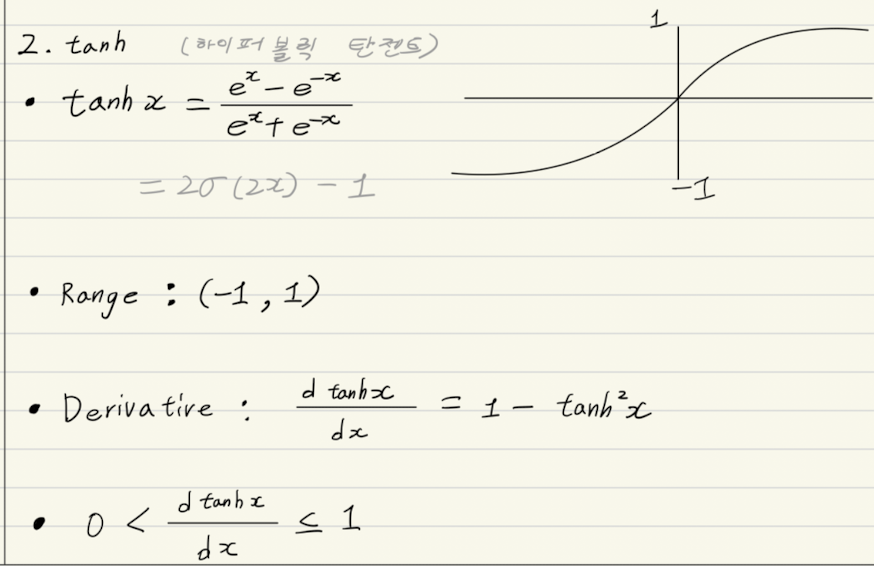 2. tanh (하이퍼볼릭 탄젠트)
1
• tanh x = (e^x - e^-x) / (e^x + e^-x)
= 2σ(2x) - 1
-1
• Range : (-1, 1)
• Derivative : d tanhx / dx = 1 - tanh²x
• 0 < d tanhx / dx ≤ 1